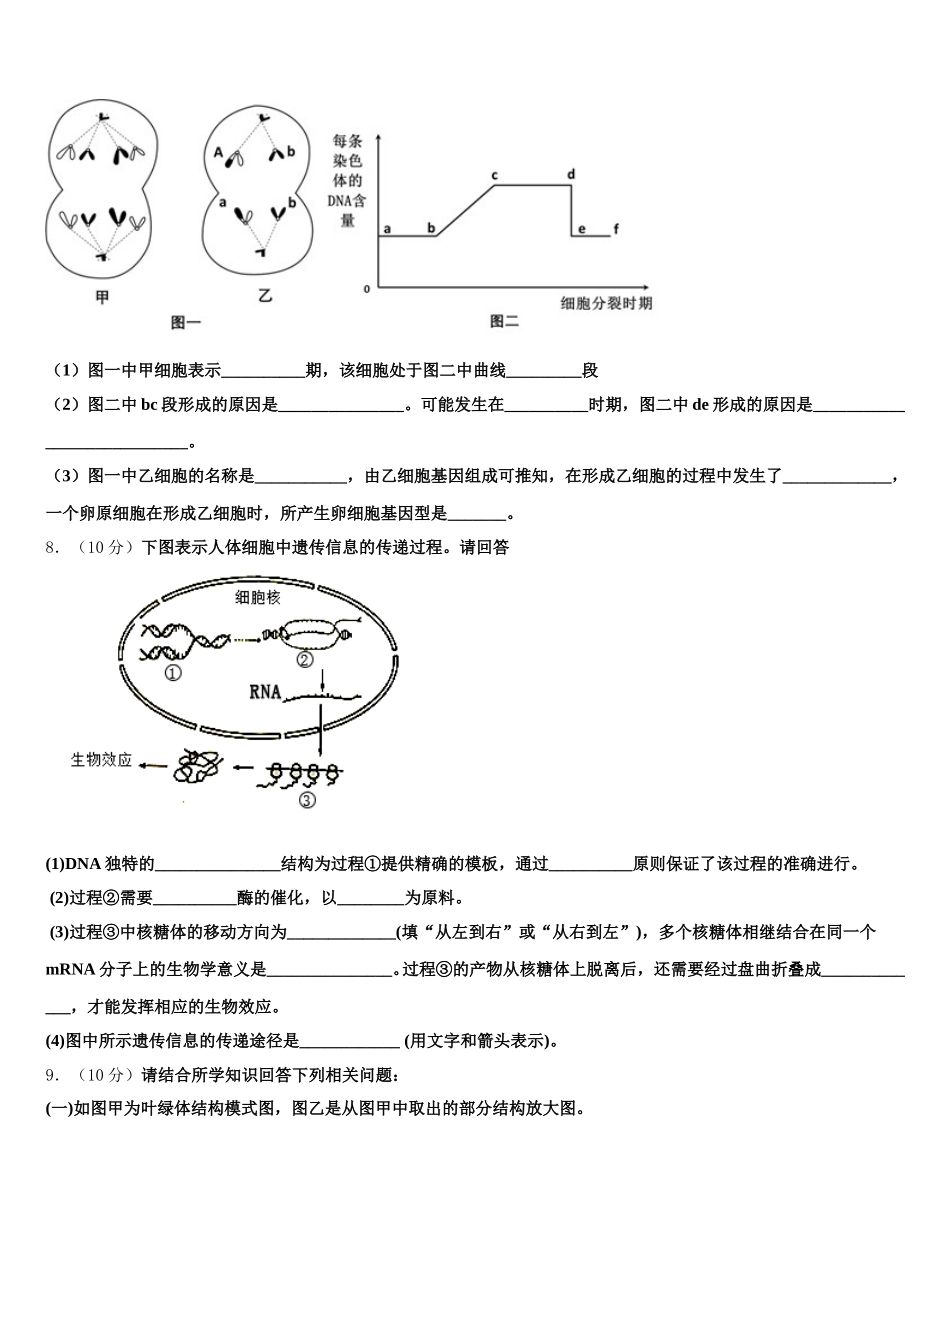 A
b
a
b
甲
乙
图一
每条
染色
体的
DNA含
量
a
b
c
d
e
f
0
细胞分裂时期
图二
（1）图一中甲细胞表示__________期，该细胞处于图二中曲线_________段
（2）图二中 bc 段形成的原因是_______________。可能发生在__________时期，图二中 de 形成的原因是___________
_________________。
（3）图一中乙细胞的名称是___________，由乙细胞基因组成可推知，在形成乙细胞的过程中发生了_____________，
一个卵原细胞在形成乙细胞时，所产生卵细胞基因型是_______。
8．（10 分）下图表示人体细胞中遗传信息的传递过程。请回答
细胞核
①
②
RNA
生物效应
③
(1)DNA 独特的_______________结构为过程①提供精确的模板，通过__________原则保证了该过程的准确进行。
(2)过程②需要__________酶的催化，以________为原料。
(3)过程③中核糖体的移动方向为_____________(填“从左到右”或“从右到左”)，多个核糖体相继结合在同一个
mRNA 分子上的生物学意义是_______________。过程③的产物从核糖体上脱离后，还需要经过盘曲折叠成__________
___，才能发挥相应的生物效应。
(4)图中所示遗传信息的传递途径是____________ (用文字和箭头表示)。
9．（10 分）请结合所学知识回答下列相关问题：
(一)如图甲为叶绿体结构模式图，图乙是从图甲中取出的部分结构放大图。